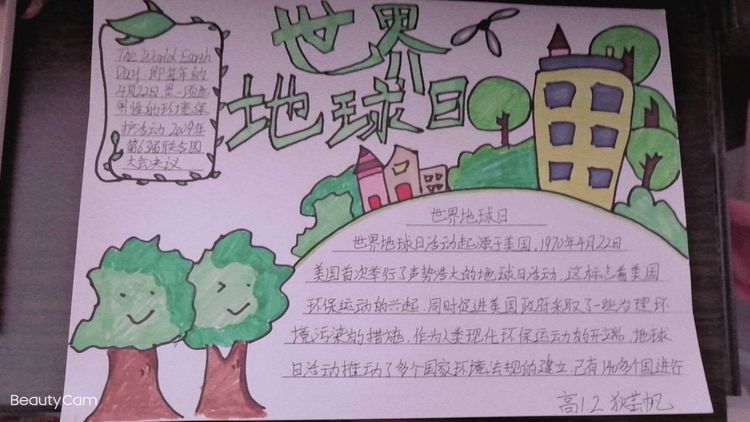 世界
地球日
The World Earth
Day 即每年的
4月22日,是一项世
界性的环境保
护活动 2009年
第63届联合国
大会决议
世界地球日
世界地球日活动起源于美国,1970年4月22日
美国首次举行了声势浩大的地球日活动,这标志着美国
环保运动的兴起,同时促进美国政府采取了一些治理环
境污染的措施,作为人类现代环保运动的开端,地球
日活动推动了多个国家环境法规的建立,已有140多个国进行
高1.2
BeautyCam